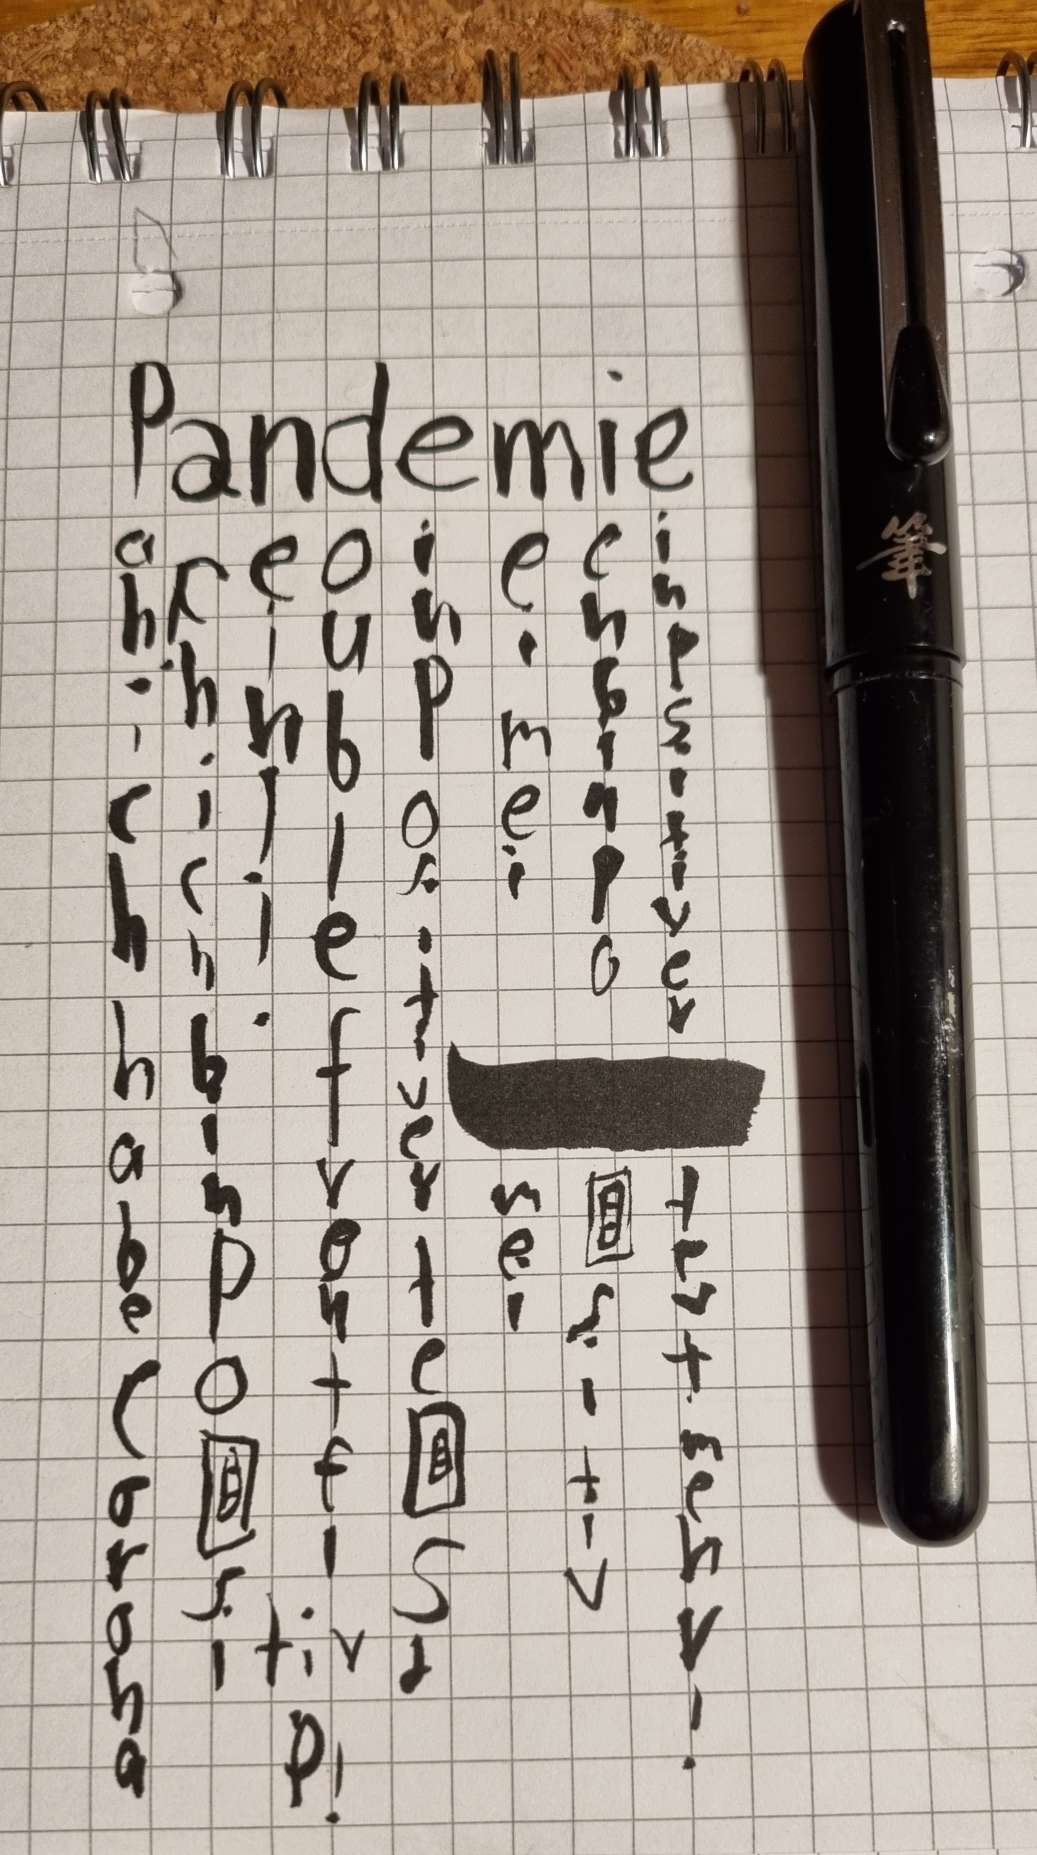 Pandemie
ahichhabeCorona
chichbinpositiv
ein!!
oublefvontfi
inpositivertest
eimei mei
chbinpositiv
inpositiver testmehr!
P!
筆